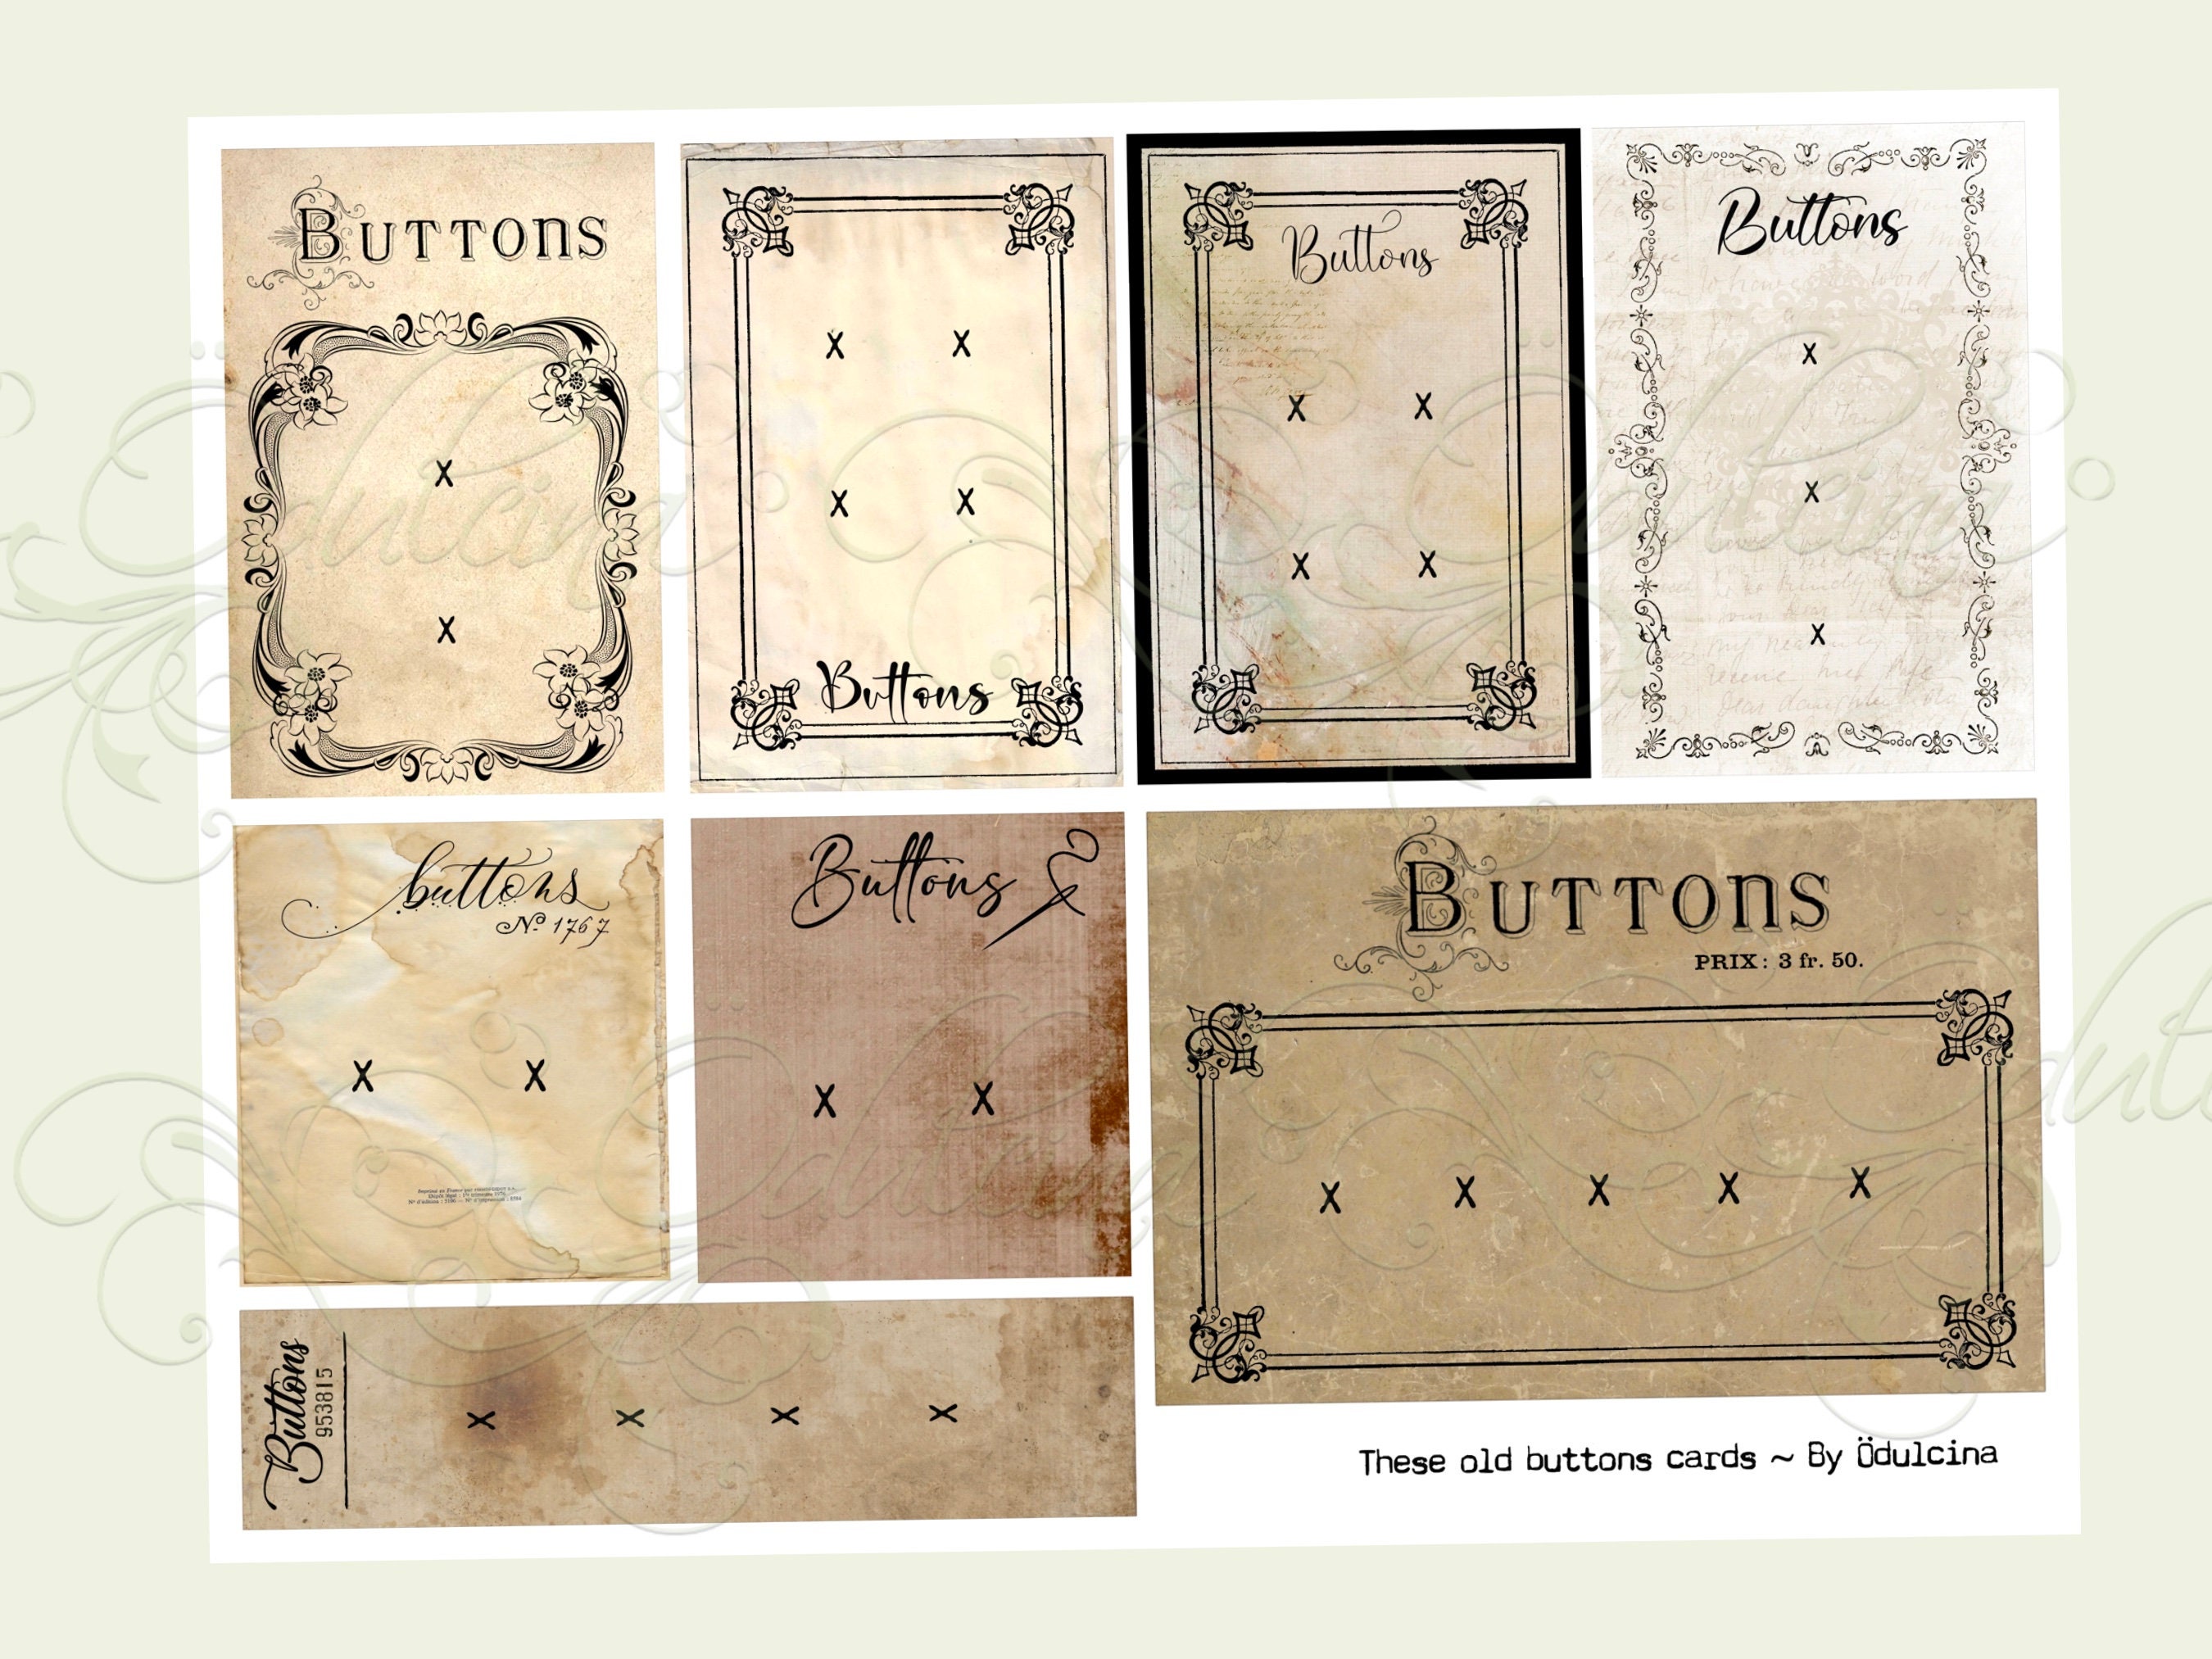 Buttons
X
X
X X
X X
Buttons
Buttons
X X
X X
Buttons
X
X
X
buttons
Nº 1767
X X
Buttons
X X
Buttons
PRIX: 3 fr. 50.
X X X X X
Buttons
953815
X X X X
These old buttons cards ~ By Ödulcina
Ödulcina
Ödulcina
Ödulcina